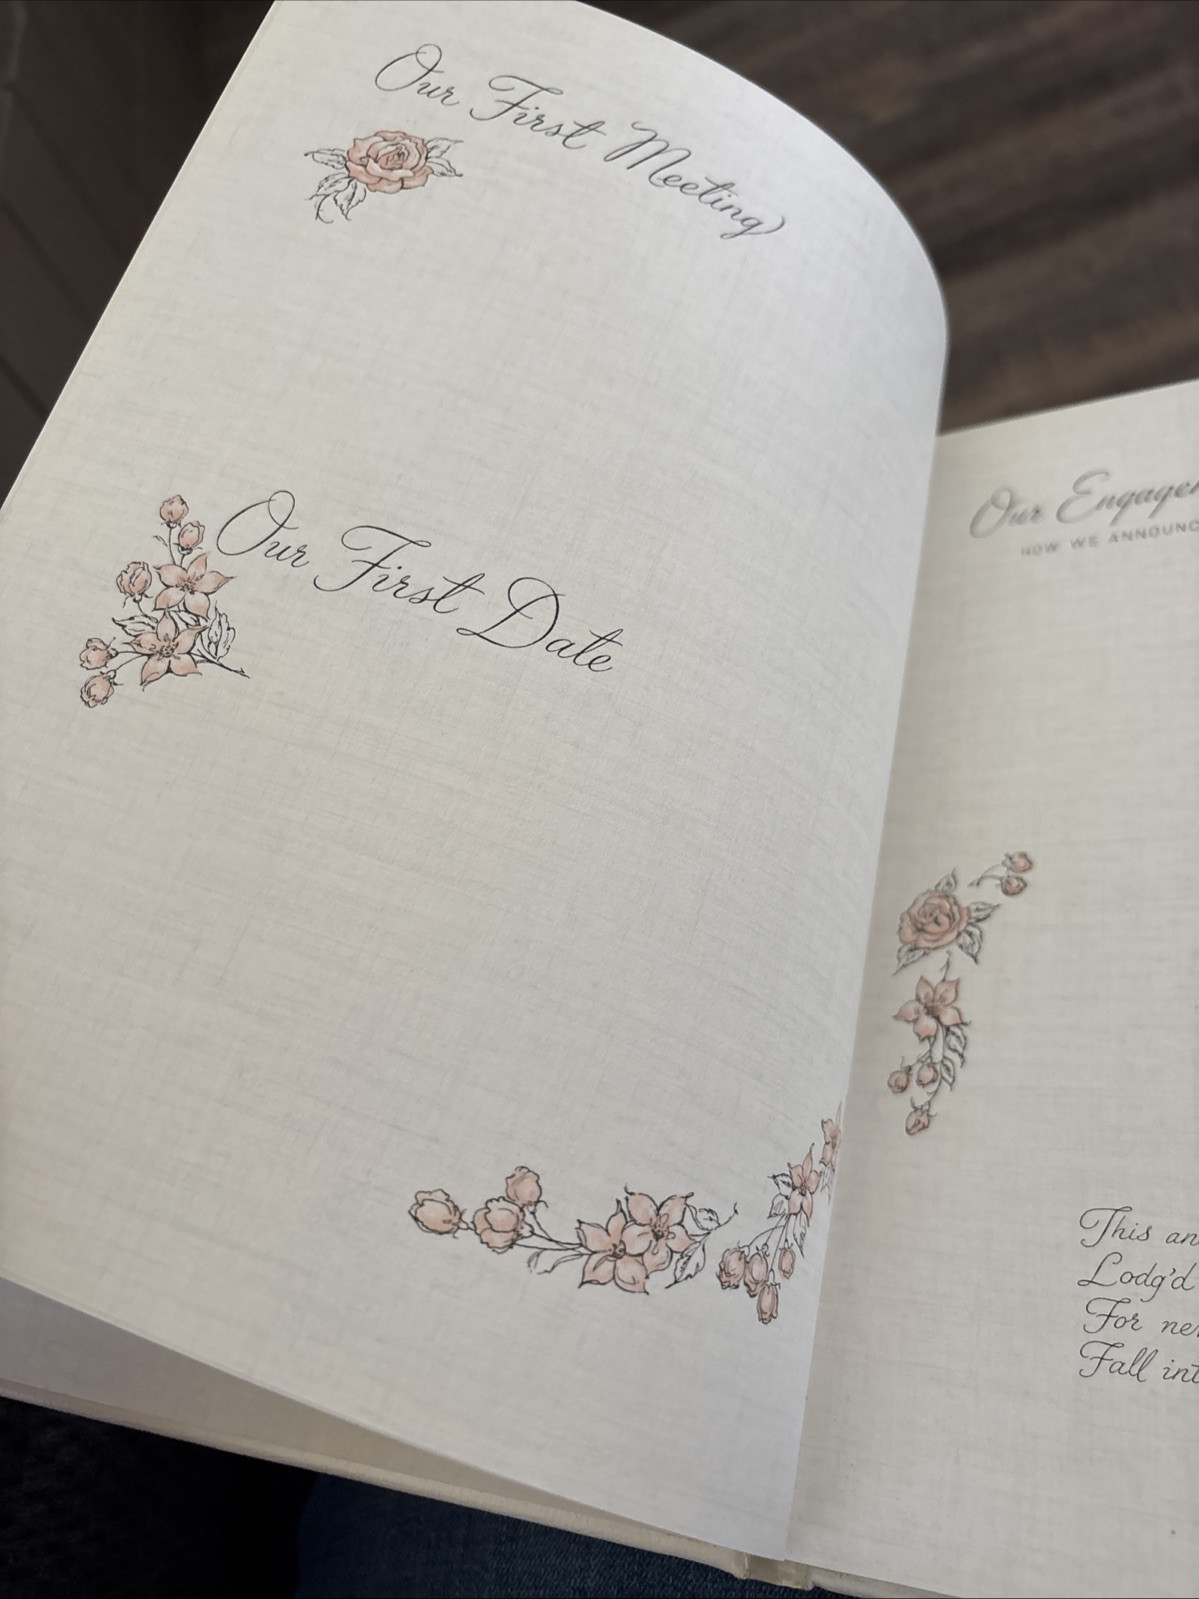 Our First Meeting
Our First Date
Our
HOW WE ANNOUNC
This an
Lodg'd
For
Fall int